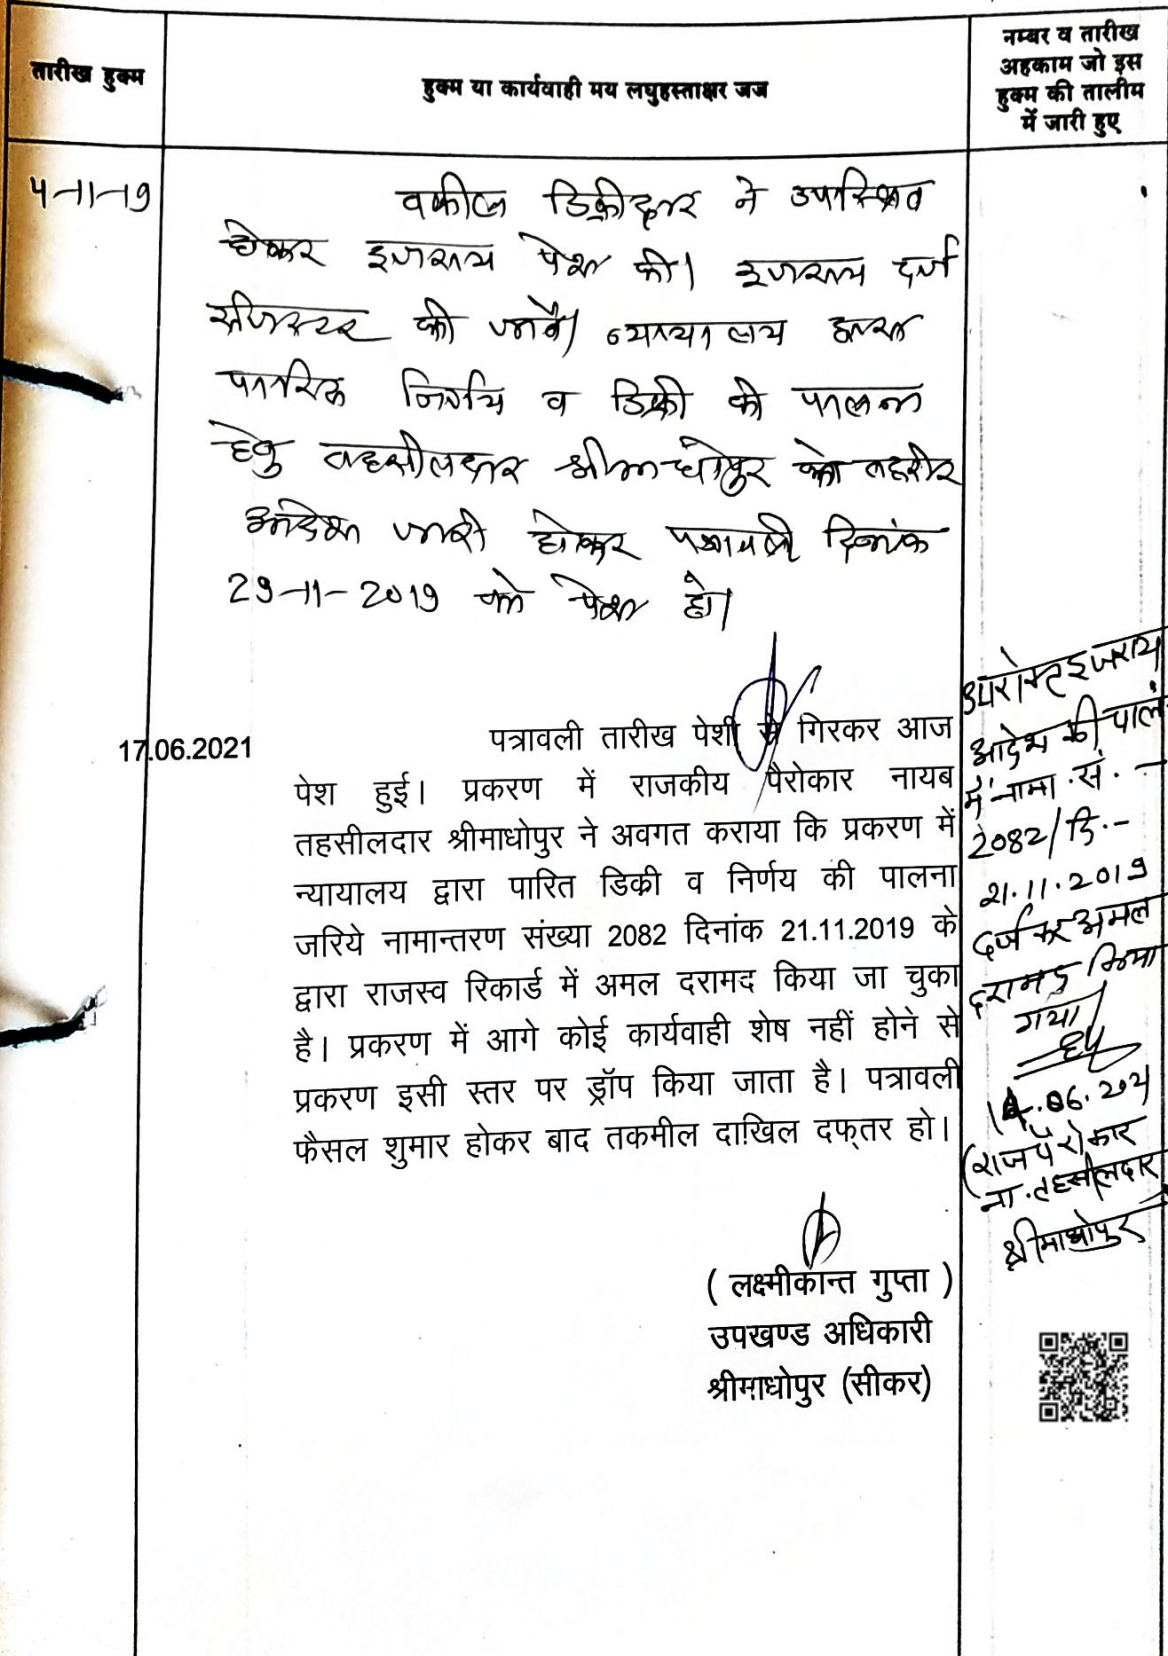 तारीख हुक्म
हुक्म या कार्यवाही मय लघुहस्ताक्षर जज
नम्बर व तारीख
अहकाम जो इस
हुक्म की तालीम
में जारी हुए
4-11-19
वकील डिक्रीदार ने उपस्थित
होकर इजराय पेश की। इजराय दर्ज
रजिस्टर की जावे। न्यायालय द्वारा
पारित निर्णय व डिक्री की पालना
हेतु तहसीलदार श्रीमाधोपुर को तहरीर
आदेश जारी होकर पत्रावली दिनांक
29-11-2019 को पेश हो।
17.06.2021
पत्रावली तारीख पेशी से गिरकर आज
पेश हुई। प्रकरण में राजकीय पैरोकार नायब
तहसीलदार श्रीमाधोपुर ने अवगत कराया कि प्रकरण में
न्यायालय द्वारा पारित डिक्री व निर्णय की पालना
जरिये नामान्तरण संख्या 2082 दिनांक 21.11.2019 के
द्वारा राजस्व रिकार्ड में अमल दरामद किया जा चुका
है। प्रकरण में आगे कोई कार्यवाही शेष नहीं होने से
प्रकरण इसी स्तर पर ड्रॉप किया जाता है। पत्रावली
फैसल शुमार होकर बाद तकमील दाखिल दफ्तर हो।
( लक्ष्मीकान्त गुप्ता )
उपखण्ड अधिकारी
श्रीमाधोपुर (सीकर)
उपरोक्त इजराय
आदेश की पाल
में नामा. सं. -
2082/दि.-
21.11.2019
दर्ज कर अमल
दरामद किया
गया।
.06.2021
(राज पैरोकार
ना. तहसीलदार
श्रीमाधोपुर